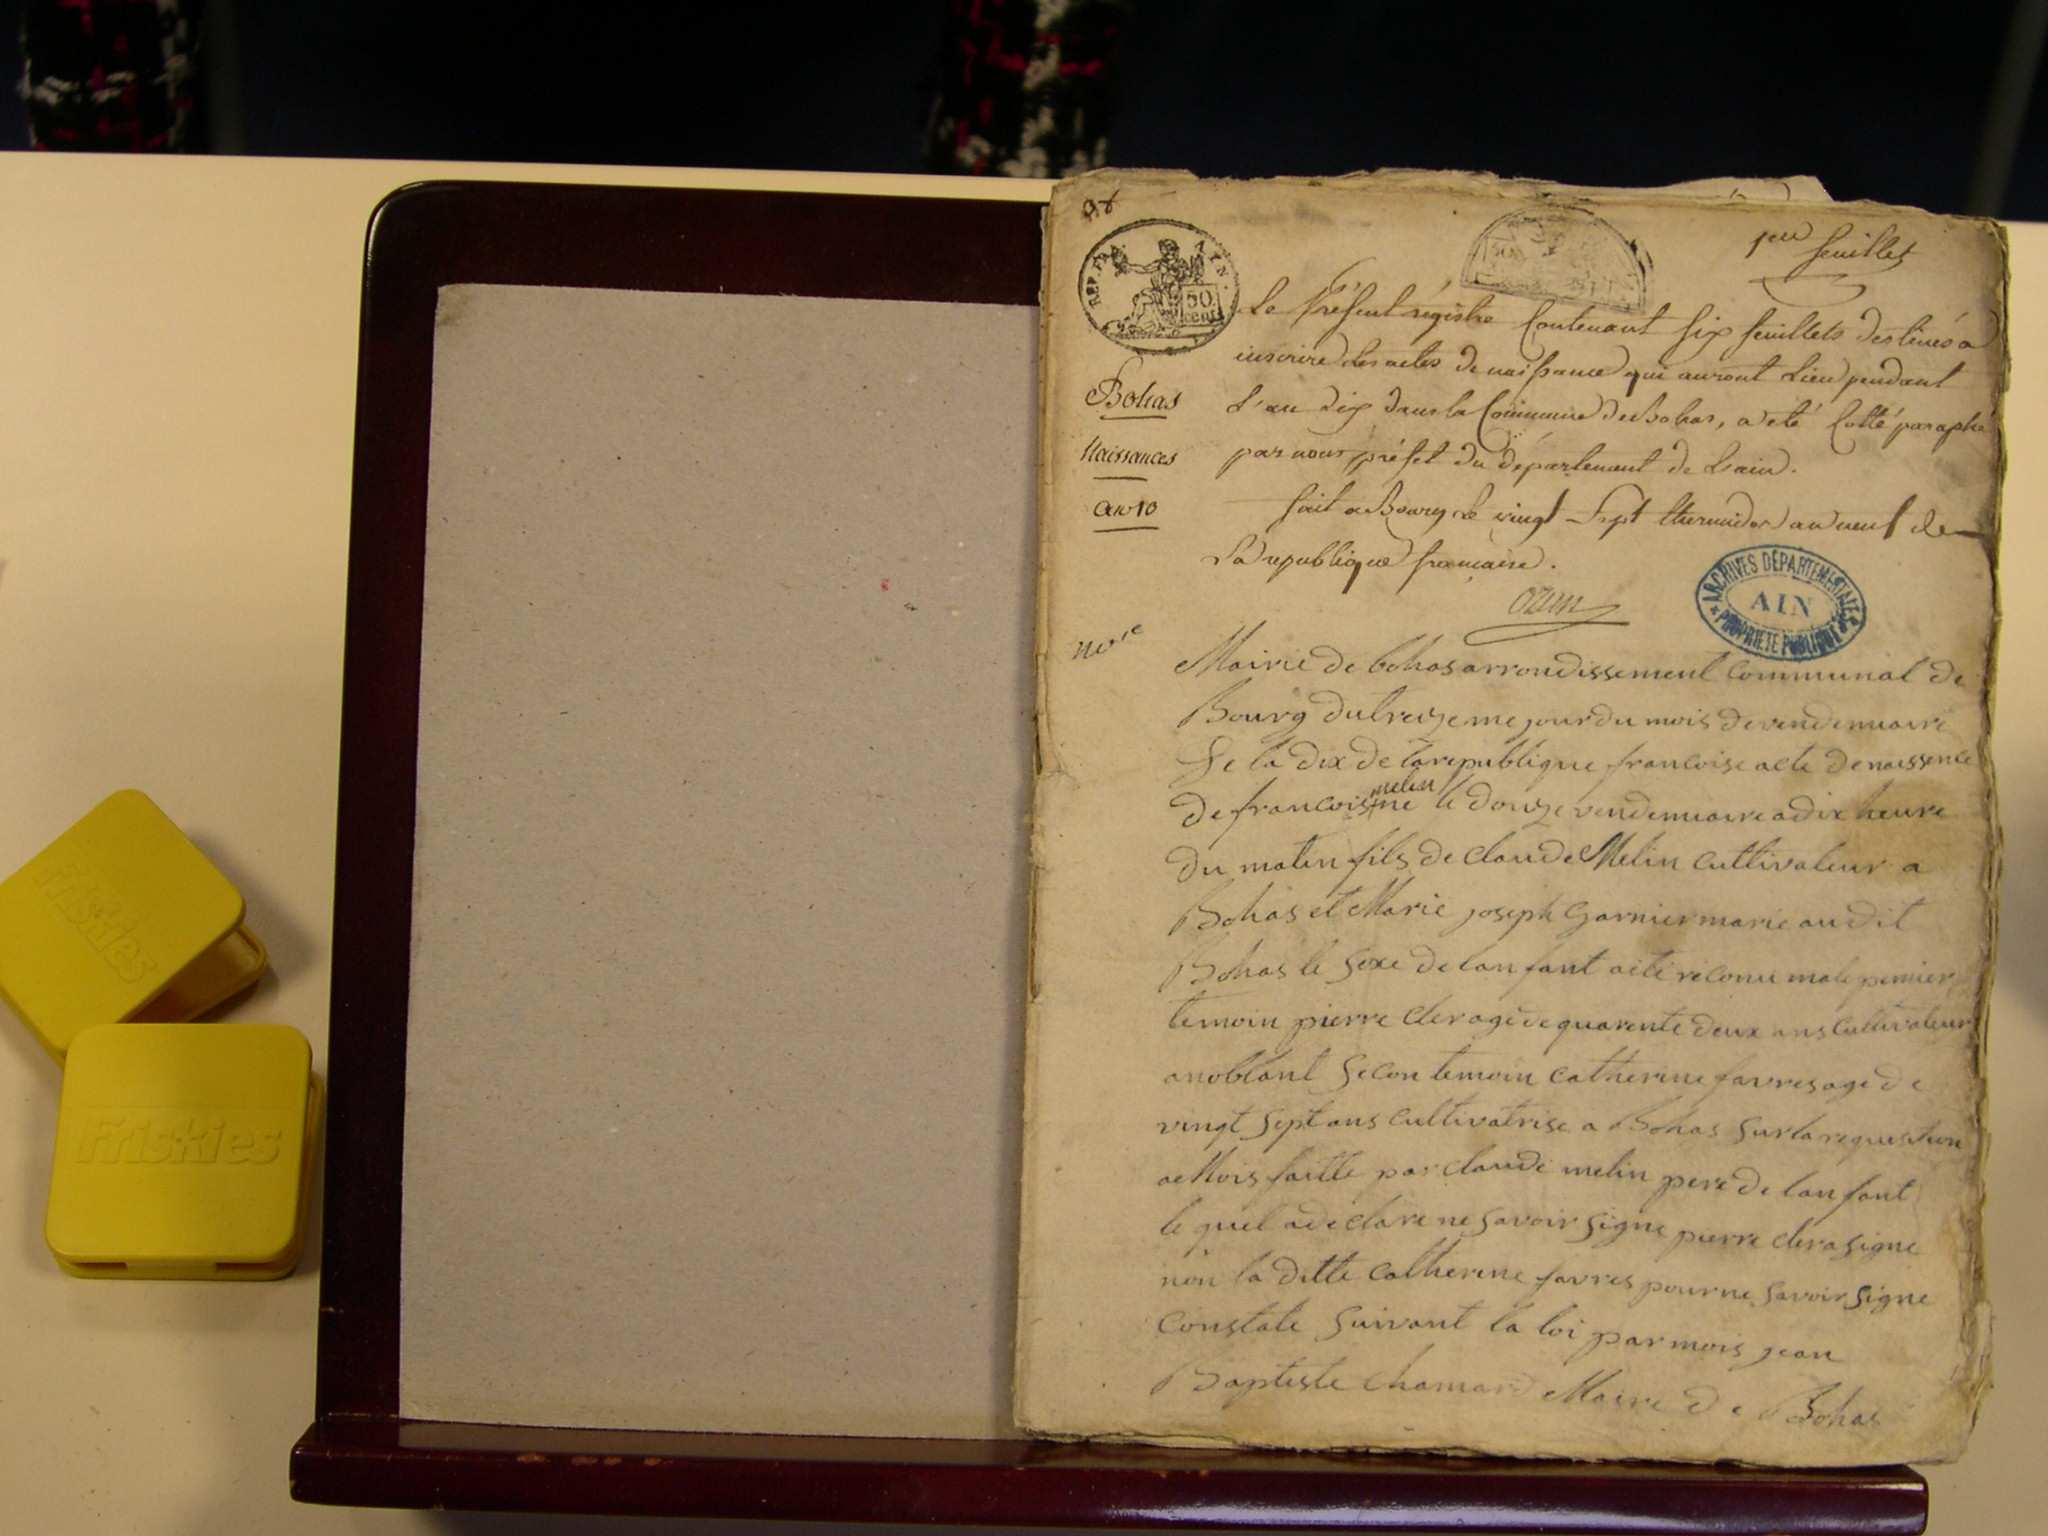 1er feuillet
REP. FRA.
50 cent
Le présent régistre Contenant six feuillets destinés a
inscrire les actes de naissance qui auront Lieu pendant
L'an dix dans la Commune de Bohas, a été Cotté paraphé
par nous préfet du département de L'ain.
fait a Bourg le vingt sept thermidor an neuf de
La republique francaise.
ozun
Bohas
Naissances
an 10
ARCHIVES DÉPARTEMENTALES
AIN
PROPRIÉTÉ PUBLIQUE
Mairie de bohas arrondissement communal de
Bourg du treizeme jour du mois de vendemiaire
de la dix de la republique francoise acte de naissence
de francois melin ne le douze vendemiaire a dix heure
du matin fils de claude Melin cultivateur a
Bohas et Marie joseph Garnier marie au dit
Bohas le sexe de lanfant a ete reconu male pemier
temoin pierre cler age de quarente deux ans cultivateur
a noblant secon temoin catherine favres age de
vingt sept ans cultivatrise a Bohas sur la requisition
a Mois faitte par claude melin pere de lanfant
le quel a declare ne savoir signe pierre cler a signe
non la ditte catherine favres pour ne savoir signe
constate suivant la loi par mois jean
Baptiste chamard Maire de Bohas
Friskies
Friskies